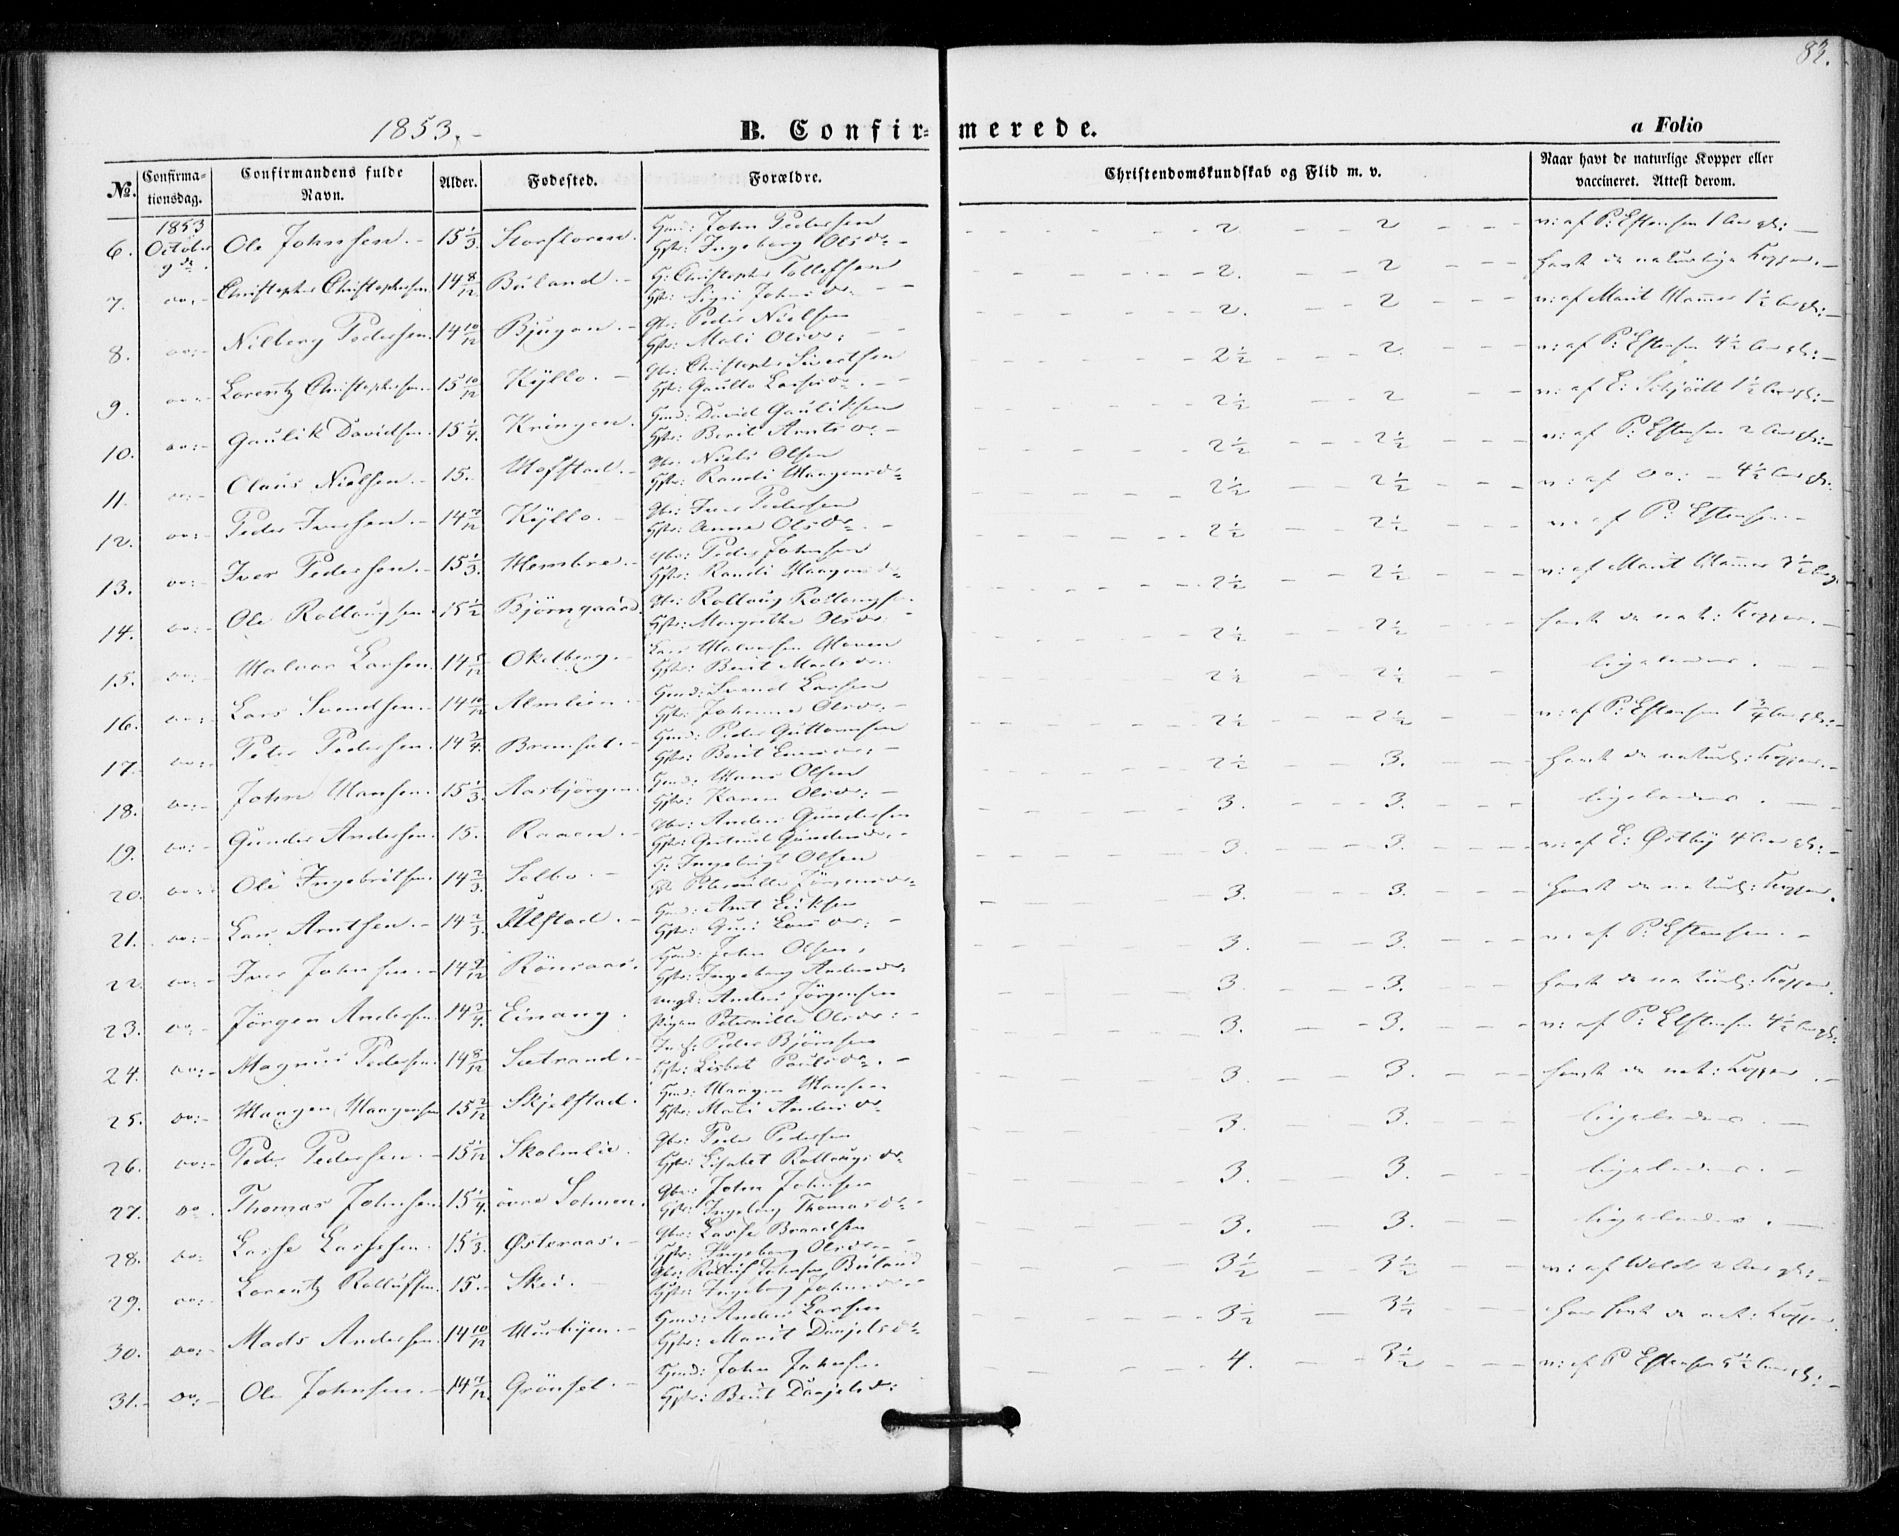 82.
1853.-
B. Confirmerede.
a Folio
№. Confirmationsdag. Confirmandens fulde Navn. Alder. Fødested. Forældre. Christendomskundskab og Flid m. v. Naar havt de naturlige Kopper eller vaccineret. Attest derom.
1853 October 9de
6. Ole Johnsen.- 15 1/3. Storfloren. Gmd: John Pedersen Hst: Ingeborg Olsdr 2. 2 v: af P: Estensen 1 Aar gl:
7. do:- Christopher Christophersen 14 8/12 Buland.- G: Christopher Tollefsen Hst: Sigri Johnsdr 2. 2 havt de naturlige Kopper.-
8. do:- Nilberg Pedersen. 14 10/12 Bjugan.- Gbr: Peder Nielsen Hst: Mali Olsdr: 2. 2 v: af Marit Hammer 1 1/2 Aar gl:-
9. do:- Lorentz Christophersen 15 10/12 Kyllo.- Gbr: Christopher Sivertsen Hst: Gurilla Larsdr. 2 1/2 2. v: af P: Estensen 4 1/2 Aar gl:-
10. do:- Gaulik Davidsen. 15 1/4. Kringen. Gmd: David Gauliksen Hst: Berit Arntsdr- 2 1/2 2 v: af E: Schjödt 1 1/2 Aar gl:-
11. do:- Olaus Nielsen.- 15. Hofstad.- Gbr. Niels Olsen Hst: Randi Haagensdr 2 1/2 2 1/2 v: af P: Estensen 2 Aar gl:-
12. do:- Peder Iversen.- 14 7/12 Kyllo.- Gbr: Iver Pedersen Hst: Anne Olsdr 2 1/2 2 1/2 v: af do:- 4 1/2 Aar gl:
13. do:- Iver Pedersen.- 15 1/3. Hembre.- Gbr: Peder Johnsen Hst: Randi Haagensdr 2 1/2 2 1/2 v: af P: Estensen.-
14. do:- Ole Rollaugsen 15 1/2 Björngaard. Gbr: Rollaug Rollaugsen Hst: Margrethe Olsdr: 2 1/2 2 1/2 v: af Marit Hammer
15. do:- Halvor Larsen. Okelberg.- Lars Halvorsen Hst: Berit Madsdr. 2 1/2 2 1/2 havt de nat: Kopper.-
16. do:- Lars Svendsen.- 14 10/12 Almlien.- Gmd: Svend Larsen Hst: Johanna Olsdr.- 2 1/2 2 1/2 ligeledes.-
17. do:- Peder Pedersen. 14 3/4. Gmd: Peder Guttormsen Hst: Berit 2 1/2 2 1/2 v: af P: Estensen 1 3/4 Aar gl:-
18. do:- John Hansen. 15 1/3. Aasbjörgen. Gmd: Hans Olsen Hst: Karen Olsdr:- 2 1/2 3. havt de naturl: Kopper.-
19. do:- Gunder Andersen. 15. Raaen.- Gbr: Anders Gundersen Hst: Gertrud Gundersdr.- 3. 3. ligeledes.-
20. do:- Ole Ingebritsen. 14 2/3. Selbo.- G: Ingebrigt Olsen Petronille Jörgensdr 3. 3. v: af E: Østby 4 Aar gl:-
21. do:- Lars Arntsen.- 14 2/3. Alstad.- Gmd: Arnt Eriksen Hst: Guri Larsdr:- 3. 3. havt de naturl: Kopper.
22. do:- Iver Johnsen.- 14 9/12 Rönsaas. Gmd: John Olsen. Hst: Ingeborg Andersdr: 3. 3. v: af P: Estensen.-
23. do:- Jörgen Andersen. 14 3/4. Einang. Ungk: Anders Jörgensen Pigen Peternille Olsdr:- 3. 3. havt de naturl: Kopper.
24. do:- Magnus Pedersen. 14 8/12 Sætrand.- Peder Björnsen Hst: Lisbet Paulsdr.- 3. 3. v: af P: Estensen 4 1/2 Aar gl:
25. do:- Haagen Haagensen 15 2/12 Skjelstad. Gmd: Haagen Hansen Hst: Mali Andersdr 3. 3. havt de nat: Kopper.-
26. do:- Peder Pedersen.- 15 1/12 Skolmlie. Gbr: Peder Pedersen Hst: Lisabet Rollaugsdr- 3. 3. ligeledes.-
27. do. Thomas Johnsen. 15 1/4. övre Gbr: John Johnsen Hst: Ingeborg Thomasdr- 3. 3. ligeledes.-
28. do: Lasse Lassesen. 15 1/3. Østeraas.- Gbr: Lasse Hst: Ingeborg Olsdr 3. 3. ligeledes.-
29. do:- Lorentz Rolluffsen. 15.- Skei.- Gbr: Rolluf Johnsen Buland Hst: Ingeborg Johnsdr- 3 1/2 3 1/2 v: af Wold 2 Aar gl:-
30. do:- Mads Andersen. 14 10/12 Husbyen.- Gmd: Anders Larsen Hst: Marit Danjelsdr 3 1/2 3 1/2 har havt de nat: Kopper.
31.- do:- Ole Johnsen.- 14 7/12 Grönset.- Gmd: John Johnsen Hst: Berit Danjelsdr: 4. 3 1/2 v: af P Estensen 5 1/2 Aar gl:-